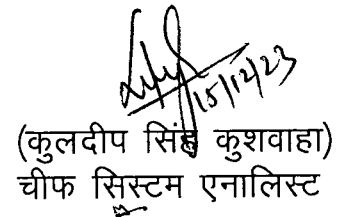 15/12/23
(कुलदीप सिंह कुशवाहा)
चीफ सिस्टम एनालिस्ट